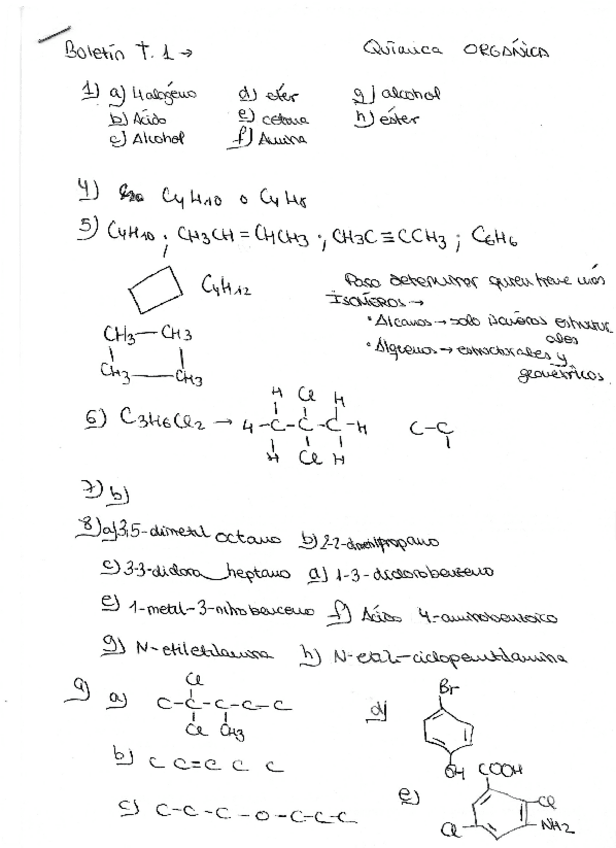 Boletín T.1 → Química ORGÁNICA
1) a) Halogéno d) eter g) alcohol
b) Ácido e) cetona h) éster
c) Alcohol f) Amina
4) C4H10 o C4H8
5) C4H10 ; CH3CH=CHCH3 ; CH3C≡CCH3 ; C6H6
C4H12
Para determinar quien tiene más
ISÓMEROS →
• Alcanos → solo isómeros estructur
ales
• Alquenos → estructurales y
geométricos
CH3—CH3
CH3—CH3
6) C3H6Cl2 →
H Cl H
4-C-C-C-H C-C
H Cl H
7) b)
8) a) 3,5-dimetil octano b) 2-2-dimetilpropano
c) 3-3-dicloro heptano d) 1-3-diclorobenceno
e) 1-metil-3-nitrobenceno f) Ácido 4-aminobenzoico
g) N-etiletilamina h) N-etil-ciclopentilamina
9) a)
Cl
C-C-C-C-C
Cl CH3
b) C C=C C C
c) C-C-C-O-C-C-C
d) Br
OH
e) COOH
Cl
Cl NH2